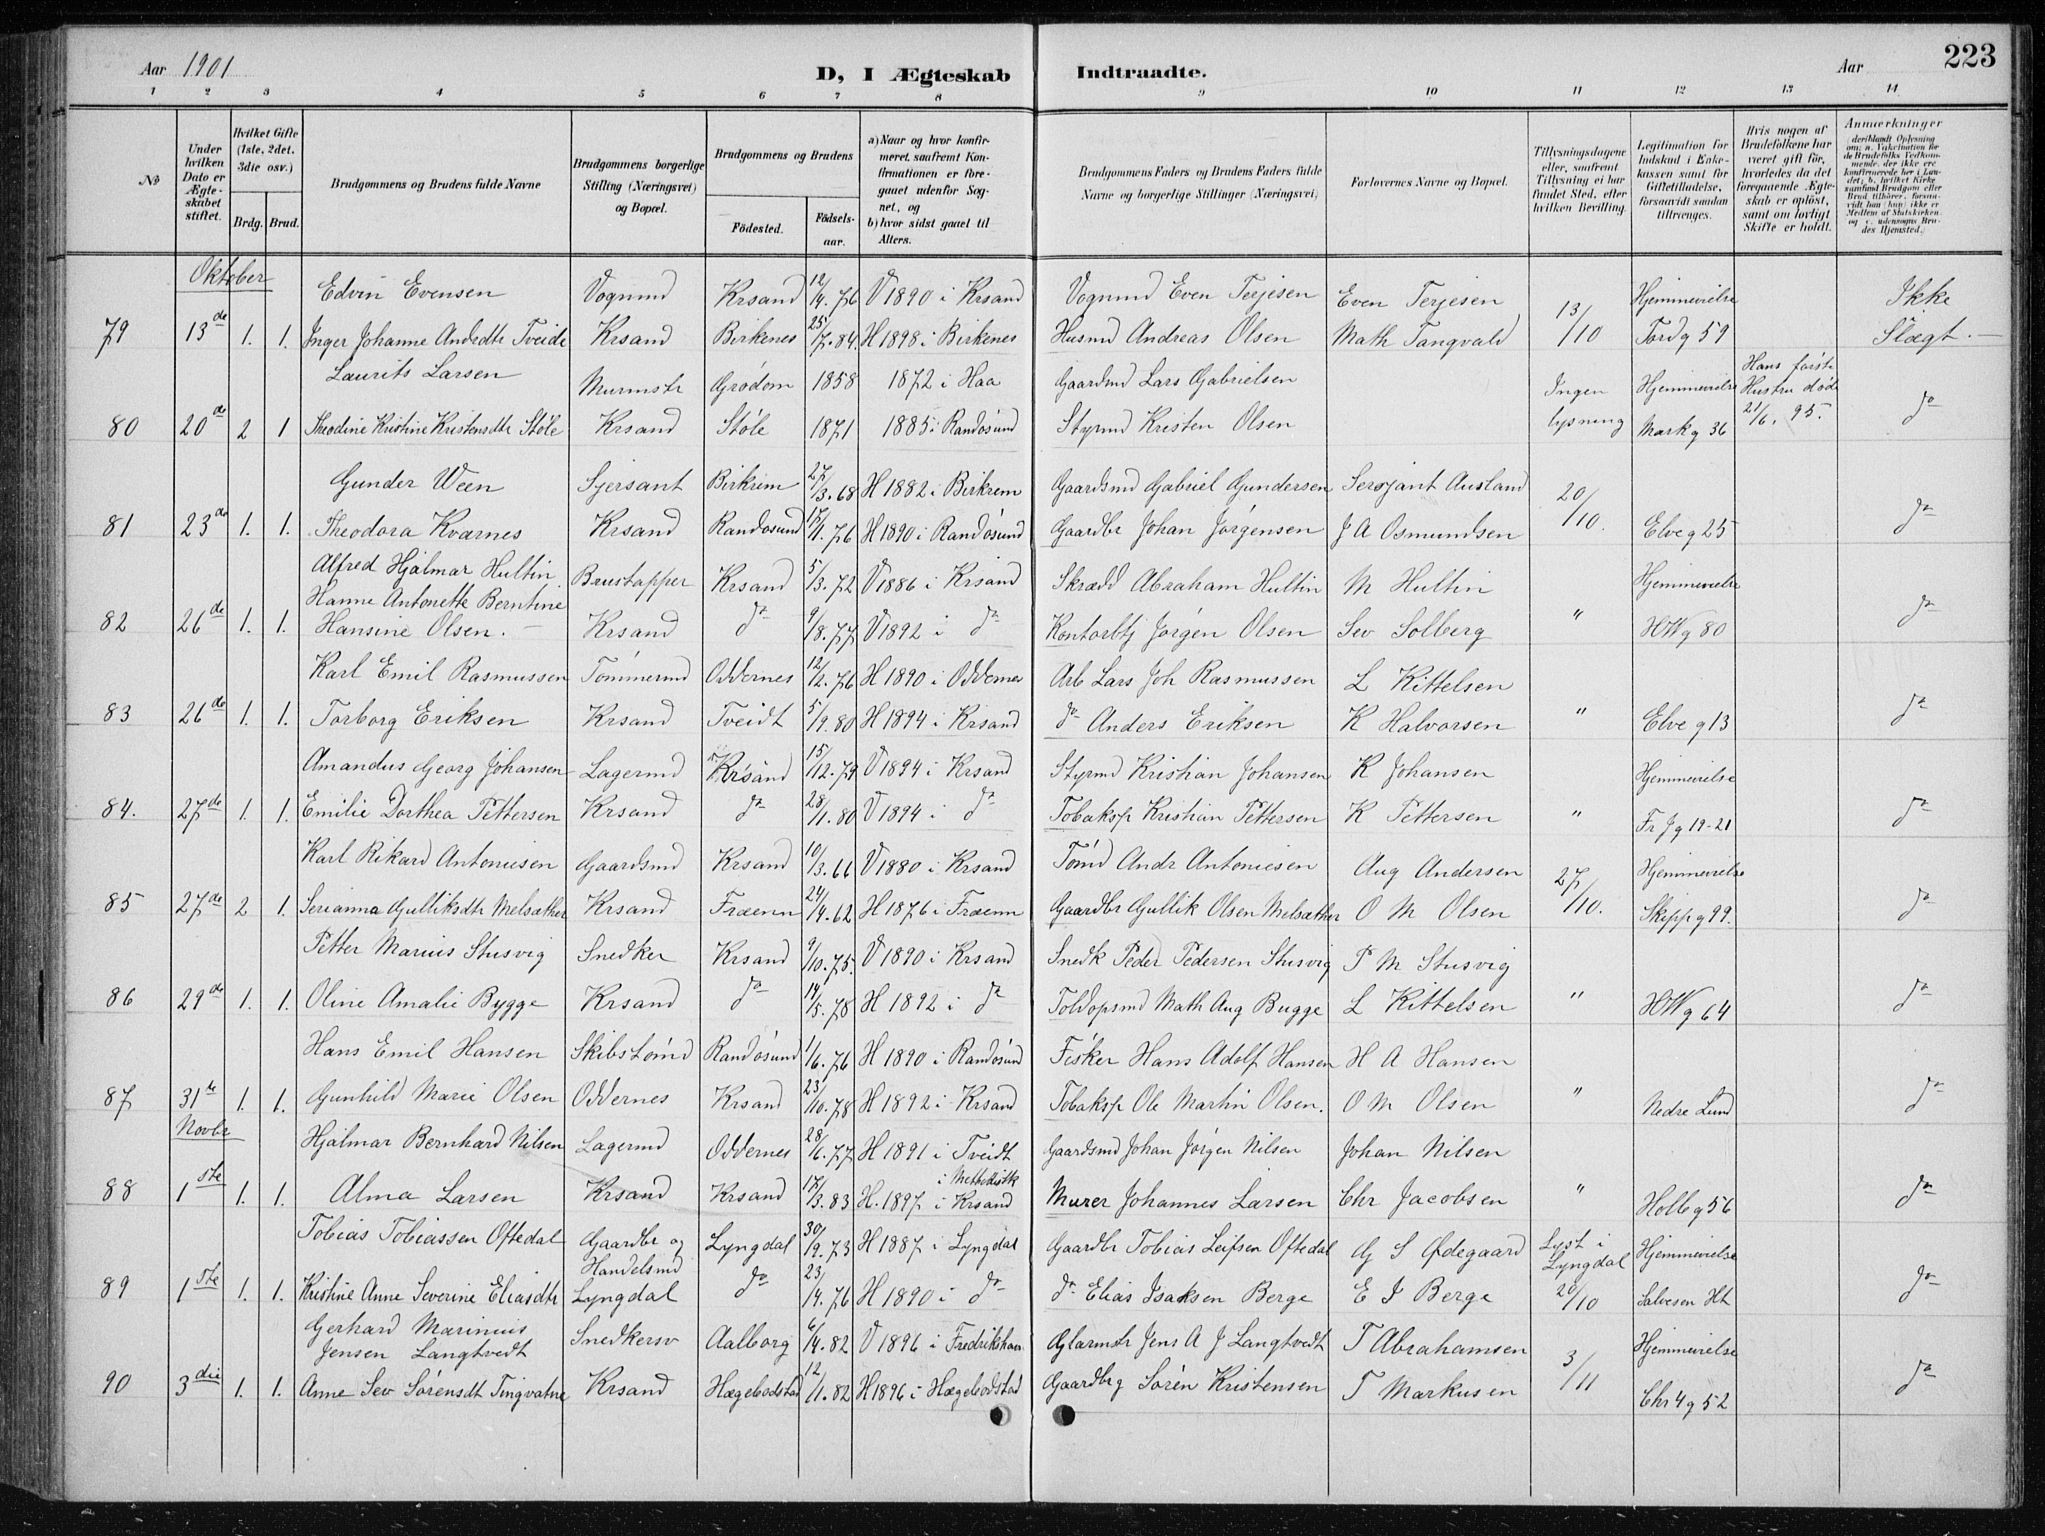 Aar 1901
D, I Ægteskab Indtraadte.
Aar 223
1 2 3 4 5 6 7 8 9 10 11 12 13 14
No
Under hvilken Dato er Ægteskabet stiftet.
Hvilket Gifte (1ste, 2det, 3die osv.)
Brdg. Brud.
Brudgommens og Brudens fulde Navne
Brudgommens borgerlige Stilling (Næringsvei) og Bopæl.
Brudgommens og Brudens
Födested. Födsels-aar.
a) Naar og hvor konfirmeret, saafremt Konfirmationen er foregaaet udenfor Sognet, og b) hvor sidst gaaet til Alters.
Brudgommens Faders og Brudens Faders fulde Navne og borgerlige Stillinger (Næringsvei)
Forlovernes Navne og Bopæl.
Tillysningsdagene eller, saafremt Tillysning ei har fundet Sted, efter hvilken Bevilling.
Legitimation for Indskud i Enkekassen samt for Giftetilladelse, forsaavidt saadan tiltrænges.
Hvis nogen af Brudefolkene har været gift för, hvorledes da det foregaaende Ægteskab er oplöst, samt om lovligt Skifte er holdt.
Anmærkninger
deriblandt Oplysning om: a. Vakcination for de Brudefolks Vedkommende, der ikke ere konfirmerede her i Landet; b. hvilket Kirkesamfund Brudgom eller Brud tilhörer, forsaavidt han (hun) ikke er Medlem af Statskirken, og c. udensogns Brudes Hjemsted.
Oktober
Edvin Evensen Vognmd Krsand 12/4.76 V 1890 i Krsand Vognmd Even Terjesen Even Terjesen Hjemmevielse Ikke
79 13de 1. 1. Inger Johanne Andsdtr Tveide Krsand Birkenes 25/7.84. H 1898 i Birkenes Husmd Andreas Olsen Math Tangvald 13/10 Tordg 59 Slægt.
Laurits Larsen Murmstr Grødem 1858 1872 i Haa Gaardsmd Lars Gabrielsen Ingen Hjemmevielse Hans første
80 20de 2 1 Theodine Kristine Kristensdtr Støle Krsand Støle 1871 1885 i Randösund Styrmd Kristen Olsen lysning Markg 36 Hustru død 21/6. 95. do
Gunder Ween Sjersant Birkrem 27/3.68 H 1882 i Birkrem Gaardsmd Gabriel Gundersen Sersjant Ausland
81 23de 1. 1. Theodora Kvarnes Krsand Randosund 17/1.76 H 1890 i Randösund Gaardbr Johan Jørgensen J A Osmundsen 20/10. Elveg 25 do
Alfred Hjalmar Hultin Brustapper Krsand 5/3.72 V 1886 i Krsand Skrædd Abraham Hultin M Hultin Hjemmevielse
Hanne Antonette Berntine
82 26de 1. 1. Hansine Olsen. Krsand do 9/8.77 V 1892 i do Kontorbtj Jørgen Olsen Sev Solberg " HWg 80 do
Karl Emil Rasmussen Tömmermd Oddernes 12/2.76 H 1890 i Oddernes Arb Lars Joh Rasmussen L Kittelsen
83 26de 1. 1. Torborg Eriksen Krsand Tveidt 5/9.80 H 1894 i Krsand do Anders Eriksen K Halvorsen " Elveg 13 do
Amandus Georg Johansen Lagermd Krsand 15/12.79 V 1894 i Krsand Styrmd Kristian Johansen K Johansen Hjemmevielse
84. 27de 1. 1. Emilie Dorthea Pettersen Krsand do 28/1.80 V 1894 i do Tobaksp Kristian Pettersen K Pettersen " Fr Jg 19-21 do
Karl Rikard Antoniesen Gaardsmd Krsand 10/3.66 V 1880 i Krsand Tömd Andr Antoniesen Aug Andersen Hjemmevielse
85 27de 2 1. Serianna Gulliksdtr Melsæther Krsand Fræenn 24/4.62 H 1876 i Fræenn Gaardbr Gullik Olsen Melsæther O M Olsen 27/10. Skippg 99. do
Petter Marius Stusvig Snedker Krsand 9/10.75. V 1890 i Krsand Snedk Peder Pedersen Stusvig P M Stusvig
86 29de 1. 1. Oline Amalie Bygge Krsand do 14/5.78 H 1892 i do Toldopsmd Math Aug Bugge L Kittelsen " HWg 64 do
Hans Emil Hansen Skibstømd Randösund 1/6.76 H 1890 i Randösund Fisker Hans Adolf Hansen H A Hansen
87 31te 1. 1. Gunhild Marie Olsen Oddernes Krsand 23/10.78 H 1892 i Krsand Tobaksp Ole Martin Olsen. O M Olsen " Nedre Lund do
Novbr
Hjalmar Bernhard Nilsen Lagermd Oddernes 28/6.77 H 1891 i Tveidt Gaardsmd Johan Jørgen Nilsen Johan Nilsen
88 1ste 1. 1. Alma Larsen Krsand Krsand 17/3.83 H. 1897 i Methodistk i Krsand Murer Johannes Larsen Chr Jacobsen " Holbg 56 do
Tobias Tobiassen Oftedal Gaardbr og Handelsmd Lyngdal 30/9.73 H 1887 i Lyngdal Gaardbr Tobias Leifsen Oftedal G S Ødegaard Lyst i Lyngdal Hjemmevielse
89 1ste 1. 1. Kristine Anne Severine Eliasdtr Lyngdal do 23/4.76 H 1890 i do do Elias Isaksen Berge E I Berge 20/10 Salvesen Ht do
Gerhard Marinius Jensen Langtvedt Snedkersv Aalborg 6/4.82 V 1896 i Fredrikshavn Glarmstr Jens A J Langtvedt T Abrahamsen Hjemmevielse
90 3die 1. 1. Anne Sev Sörensdt Tingvatne Krsand Hægebodstad 12/1.82 H 1896 i Hægebodstad Gaardbrg Sören Kristensen T Markusen 3/11 Chr 4 g 52 do